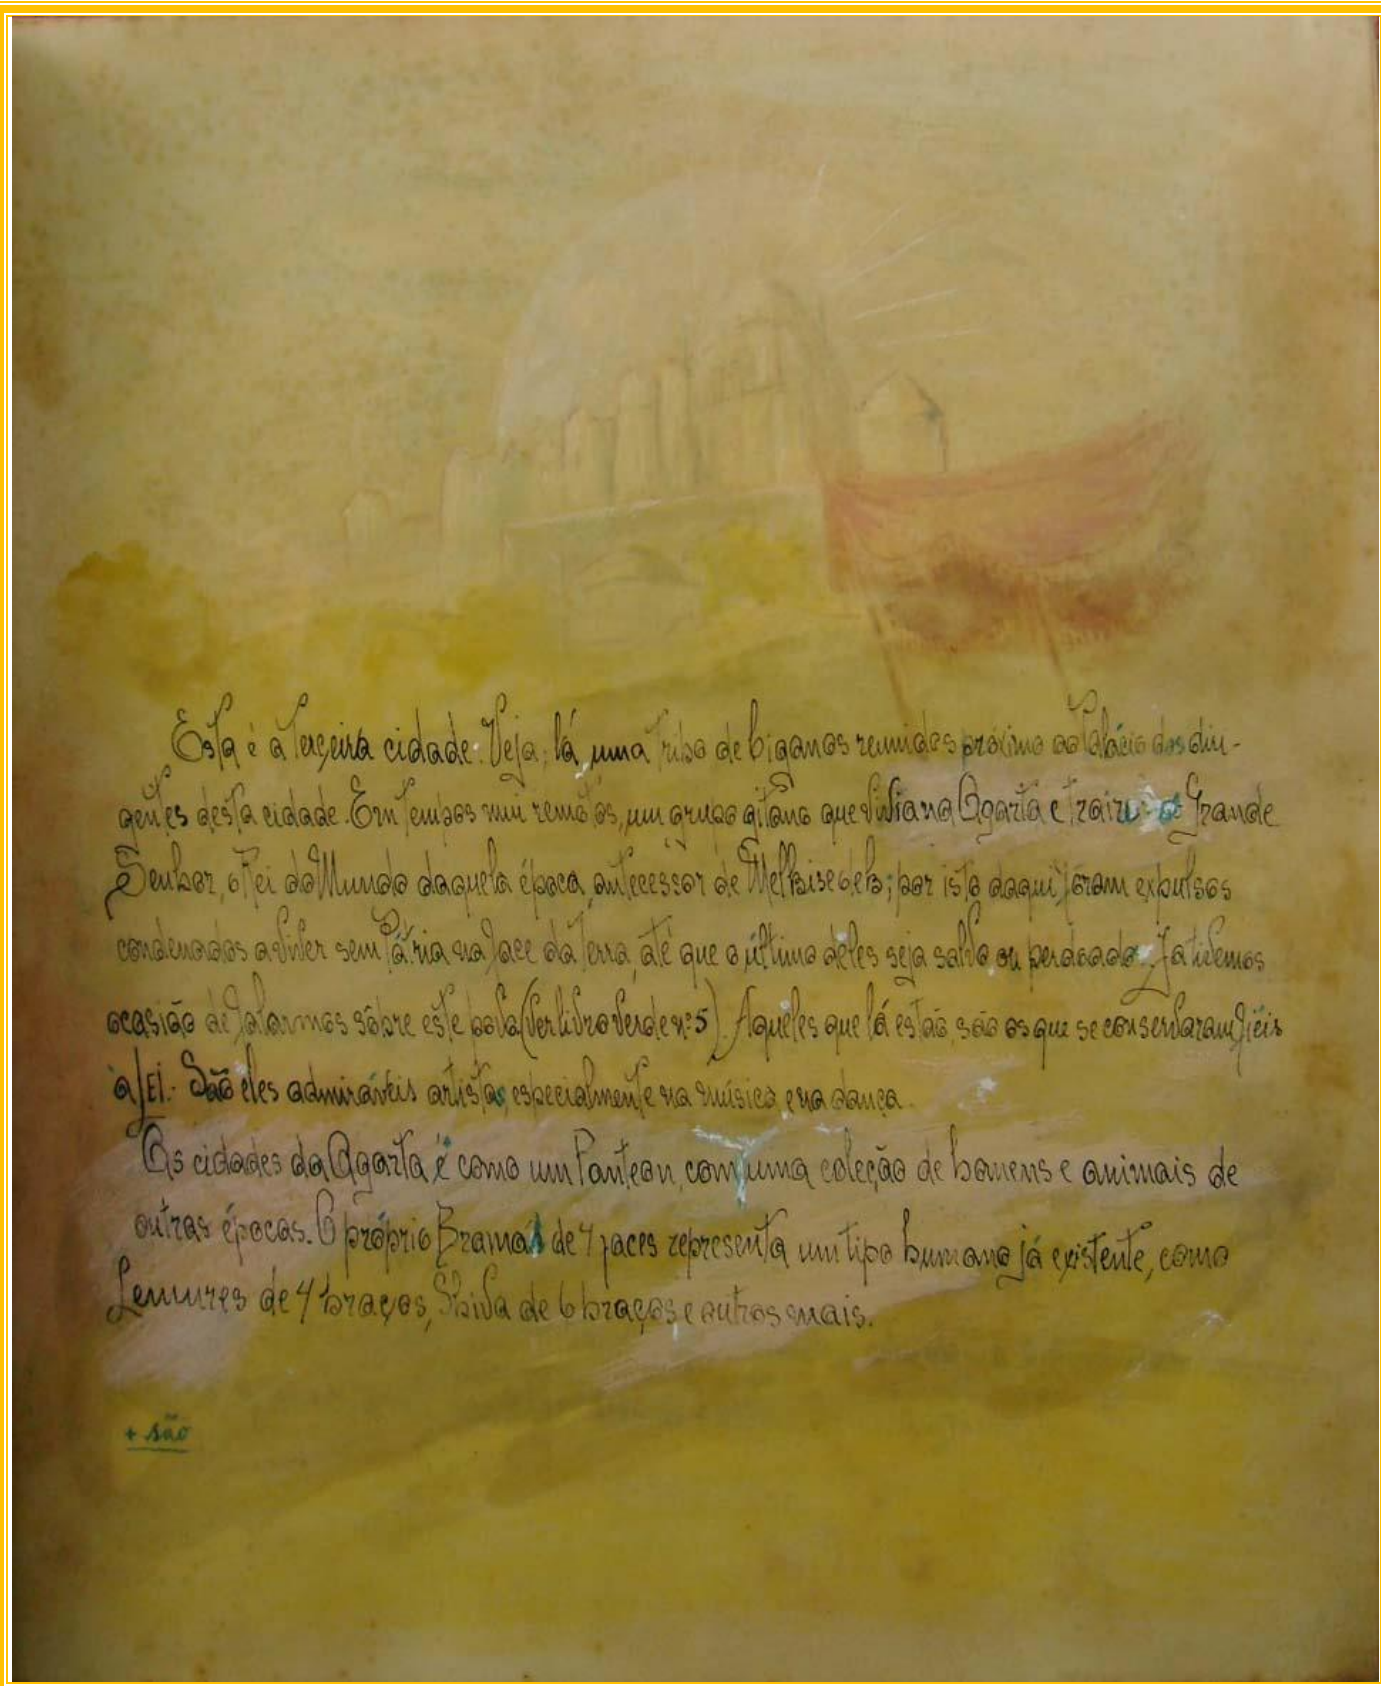 Esta é a terceira cidade. Veja, lá, uma tribo de ciganos reunidos próximo ao Palácio dos diri-
gentes desta cidade. Em tempos mui remotos, um grupo gitano que vivia na Agarta e traiu o Grande
Senhor, o Rei do Mundo daquela época, antecessor de Melkisedek; por isto daqui foram expulsos
condenados a viver sem Pátria na face da Terra, até que o último deles seja salvo ou perdoado. Já tivemos
ocasião de falarmos sôbre este povo (Ver livro Verde nº 5). Aqueles que lá estão, são os que se conservaram fiéis
à LEI. São eles admiráveis artistas, especialmente na música e na dança.
As cidades da Agarta é como um Panteon, com uma coleção de homens e animais de
outras épocas. O próprio Bramá de 4 faces representa um tipo humano já existente, como
Lemures de 4 braços, Shiva de 6 braços e outros mais.
+ são